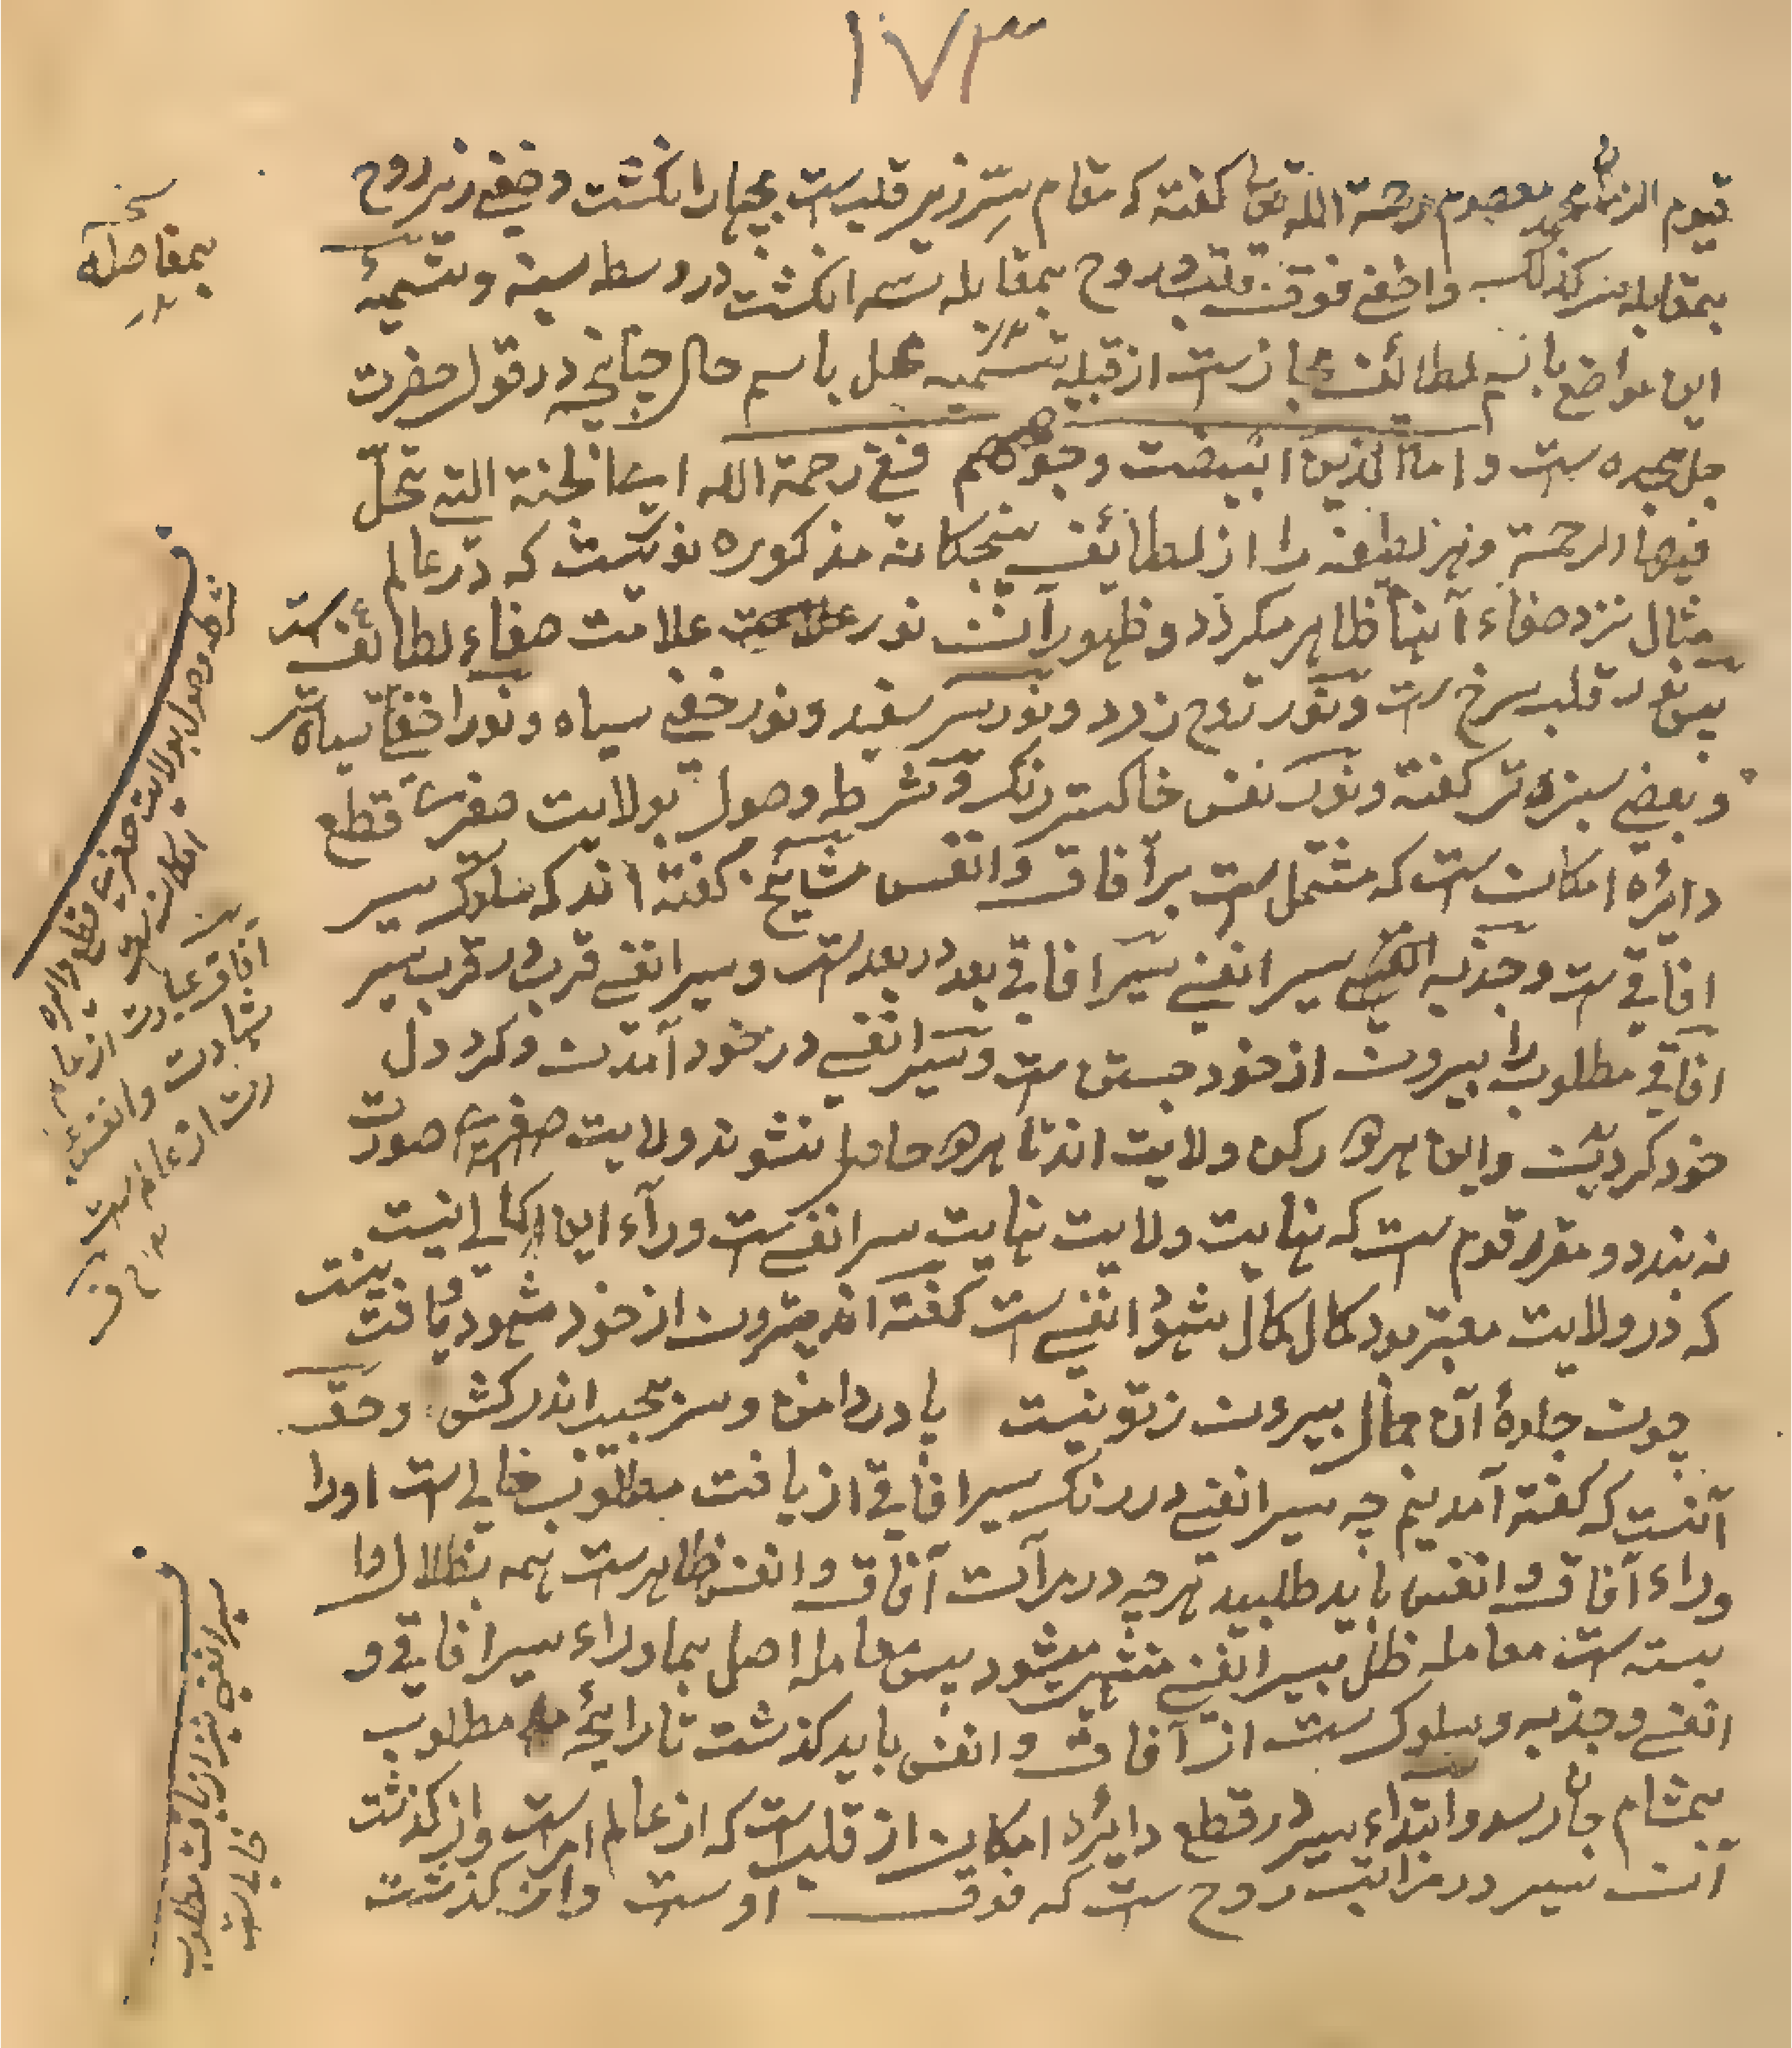 ١٧٣
قیوم الزمان محمد معصوم رحمة الله تعا گفته که مقام سِر زیر قلب ست بچهار انکشت و خفی زیر روح
بمقابله سر کذلک واخفی فوق قلب و روح بمقابله سه انکشت در وسط سینه و تسمیهٔ
این مواضع باسم لطائف مجاز ست از قبیله تسمیه محل باسم حال چنانچه در قول حضرت
جل مجده ست و اما الذین ابیضت وجوههم ففی رحمة الله ای الجنة التی تحلّ
فیها الرحمة و هر لطیفه را از لطائف پنجگانه مذکوره نوریست که در عالم
مثال نزد صفاء آنها ظاهر میکردد و ظهور آن نور علامت صفاء لطائف ست
پس نور قلب سرخ ست و نور روح زرد و نور سر سفید و نور خفی سیاه و نور اخفی سیاه تر
و بعضی سبزه تر گفته و نور نفس خاکستر رنک و شرط وصول بولایت صغری قطع
دایرهٔ امکان ست که مشتمل ست بر آفاق و انفس مشایخ گفته اند که سلوک سیر
افاقی ست و جذبه سیر انفسی سیر افاقی بعد در بعد ست و سیر انفسی قرب در قرب سیر
افاقی مطلوب را بیرون از خود جستن ست و سیر انفسی در خود آمدن و کرد دل
خود کردیدن و این هر دو رکن ولایت اند تا هر دو حاصل نشوند ولایت صغری صورت
نه بندد و مقرر قوم ست که نهایت ولایت نهایت سیر انفسی ست وراء این کمالی نیست
که در ولایت معتبر بود کمال کمال شهود انفسی ست گفته اند بیرون از خود شهود و یافت نیست
چون جلوهٔ آن جمال بیرون ز تو نیست پا در دامن و سر بجیب اندر کش و حق
آنست که گفته آمدیم چه سیر انفسی در رنک سیر افاقی از یافت مطلوب خالی ست او را
وراء آفاق و انفس باید طلبید هر چه در مرآت آفاق و انفس ظاهر ست همه بظلال وا
بسته ست معامله ظل بسیر انفسی منتهی میشود پس معامله اصل بماوراء سیر افاقی و
انفسی و جذبه و سلوک ست از آفاق و انفس باید کذشت تا رایحهٔ مطلوب
بمشام جان رسد و ابتداء سیر در قطع دایره امکان از قلب ست که از عالم امر ست و از کذشت
آن سیر در مراتب روح ست که فوق اوست و از کذشت
بمفاصله
شرط وصول بولایت صغری قطع دایره
امکان ست
آفاق عبارت از عالم
شهادت و انفس
ست از عالم
سیر انفسی نیز از یافت مطلوب
خالی ست